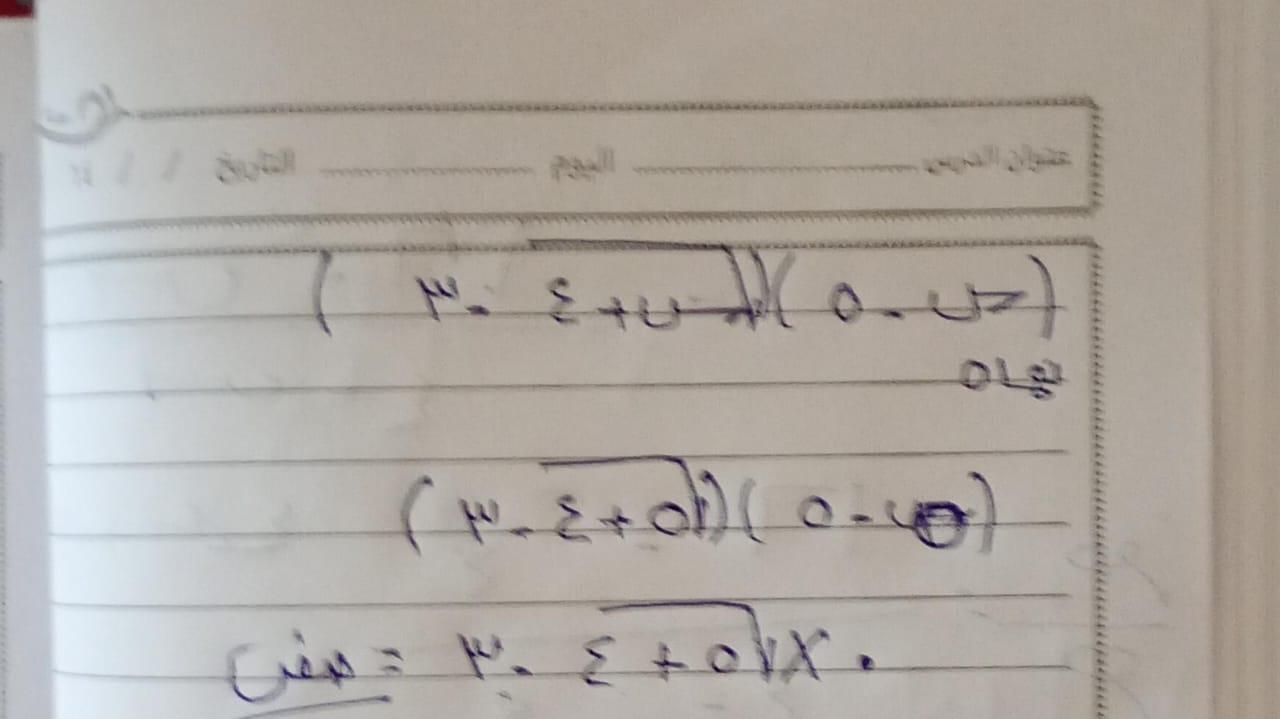 عنوان الدرس ............ اليوم ............ التاريخ / /
(س - ٥)(√س + ٤ - ٣)
نها٥
(٥ - ٥)(√٥ + ٤ - ٣)
٠ × √٥ + ٤ - ٣ = صفر